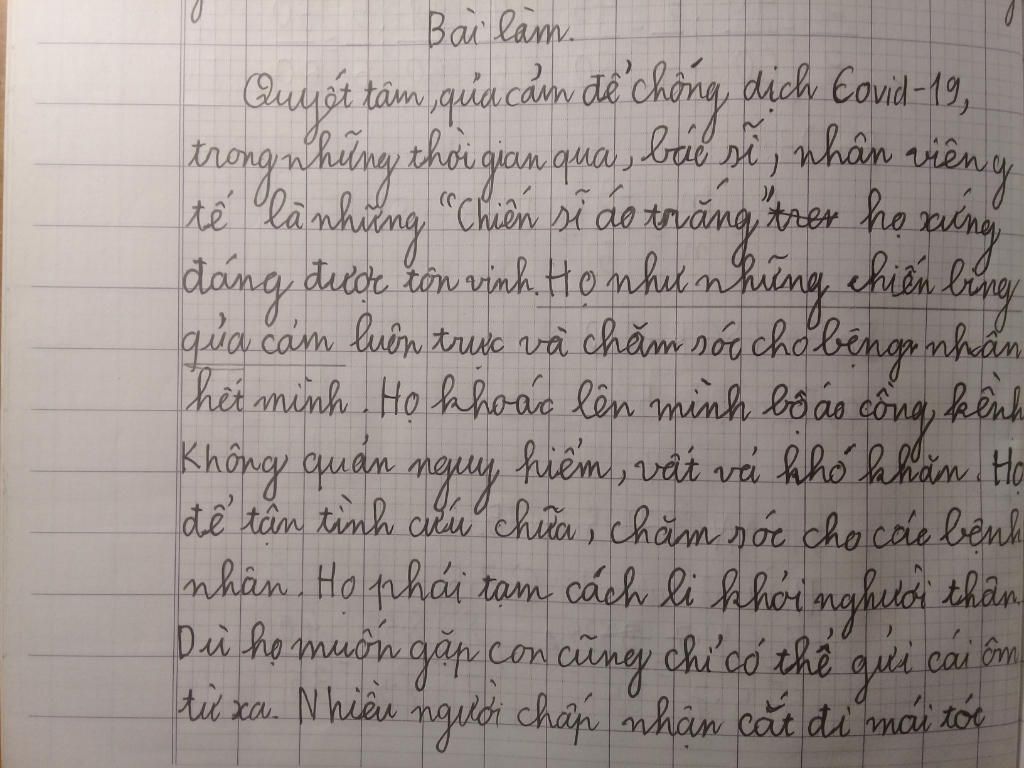 Bài làm.
Quyết tâm, qủa cảm để chống dịch Covid-19,
trong những thời gian qua, bác sĩ, nhân viên y
tế là những "Chiến sĩ áo trắng" họ xứng
đáng được tôn vinh. Họ như những chiến bing
qủa cảm luôn trực và chăm sóc cho bệng nhân
hết mình. Họ khoác lên mình bộ áo cồng kềnh
Không quản nguy hiểm, vất vả khó khăn. Họ
để tận tình cứu chữa, chăm sóc cho các bệnh
nhân. Họ phải tạm cách li khỏi nghười thân.
Dù họ muốn gặp con cũng chỉ có thể gửi cái ôm
từ xa. Nhiều người chấp nhận cắt đi mái tóc